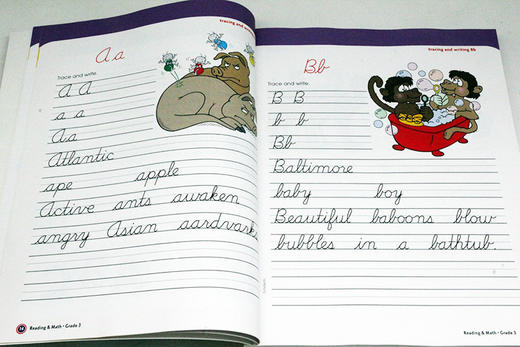 tracing and
Aa
Trace and write.
A A
a a
Aa
Atlantic
ape apple
Active ants awaken
angry Asian aardvarks
Reading & Math • Grade 3
tracing and writing Bb
Bb
Trace and write.
B B
b b
Bb
Baltimore
baby boy
Beautiful baboons blow
bubbles in a bathtub.
Reading & Math • Grade